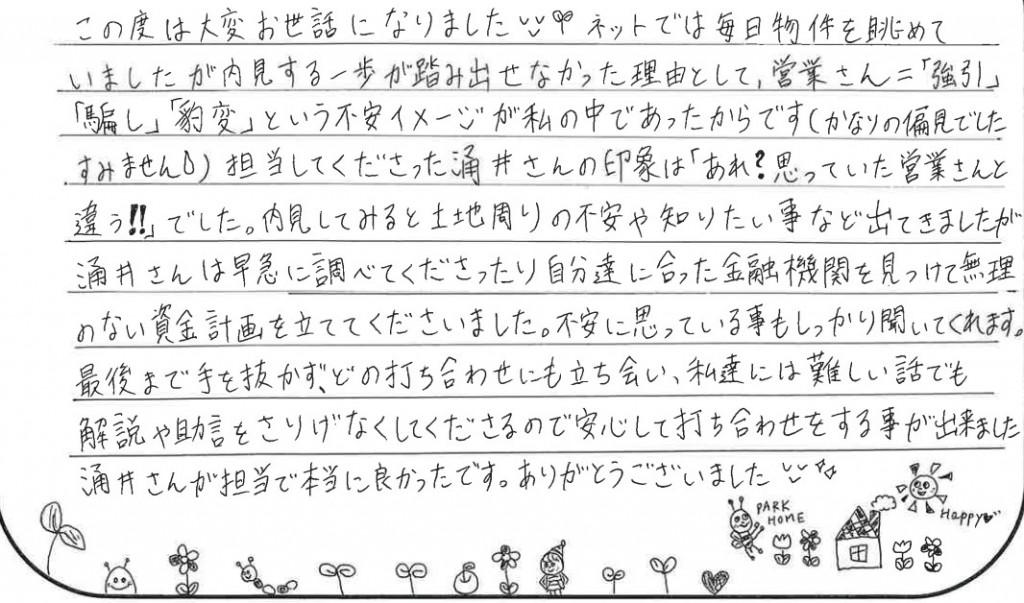 この度は大変お世話になりました ネットでは毎日物件を眺めて
いましたが内見する一歩が踏み出せなかった理由として、営業さん=「強引」
「騙し」「豹変」という不安イメージが私の中であったからです(かなりの偏見でした
すみません) 担当してくださった涌井さんの印象は「あれ?思っていた営業さんと
違う!!」でした。内見してみると土地周りの不安や知りたい事など出てきましたが
涌井さんは早急に調べてくださったり自分達に合った金融機関を見つけて無理
のない資金計画を立ててくださいました。不安に思っている事もしっかり聞いてくれます。
最後まで手を抜かず、どの打ち合わせにも立ち会い、私達には難しい話でも
解説や助言をさりげなくしてくださるので安心して打ち合わせをする事が出来ました
涌井さんが担当で本当に良かったです。ありがとうございました
PARK
HOME
HAPPY